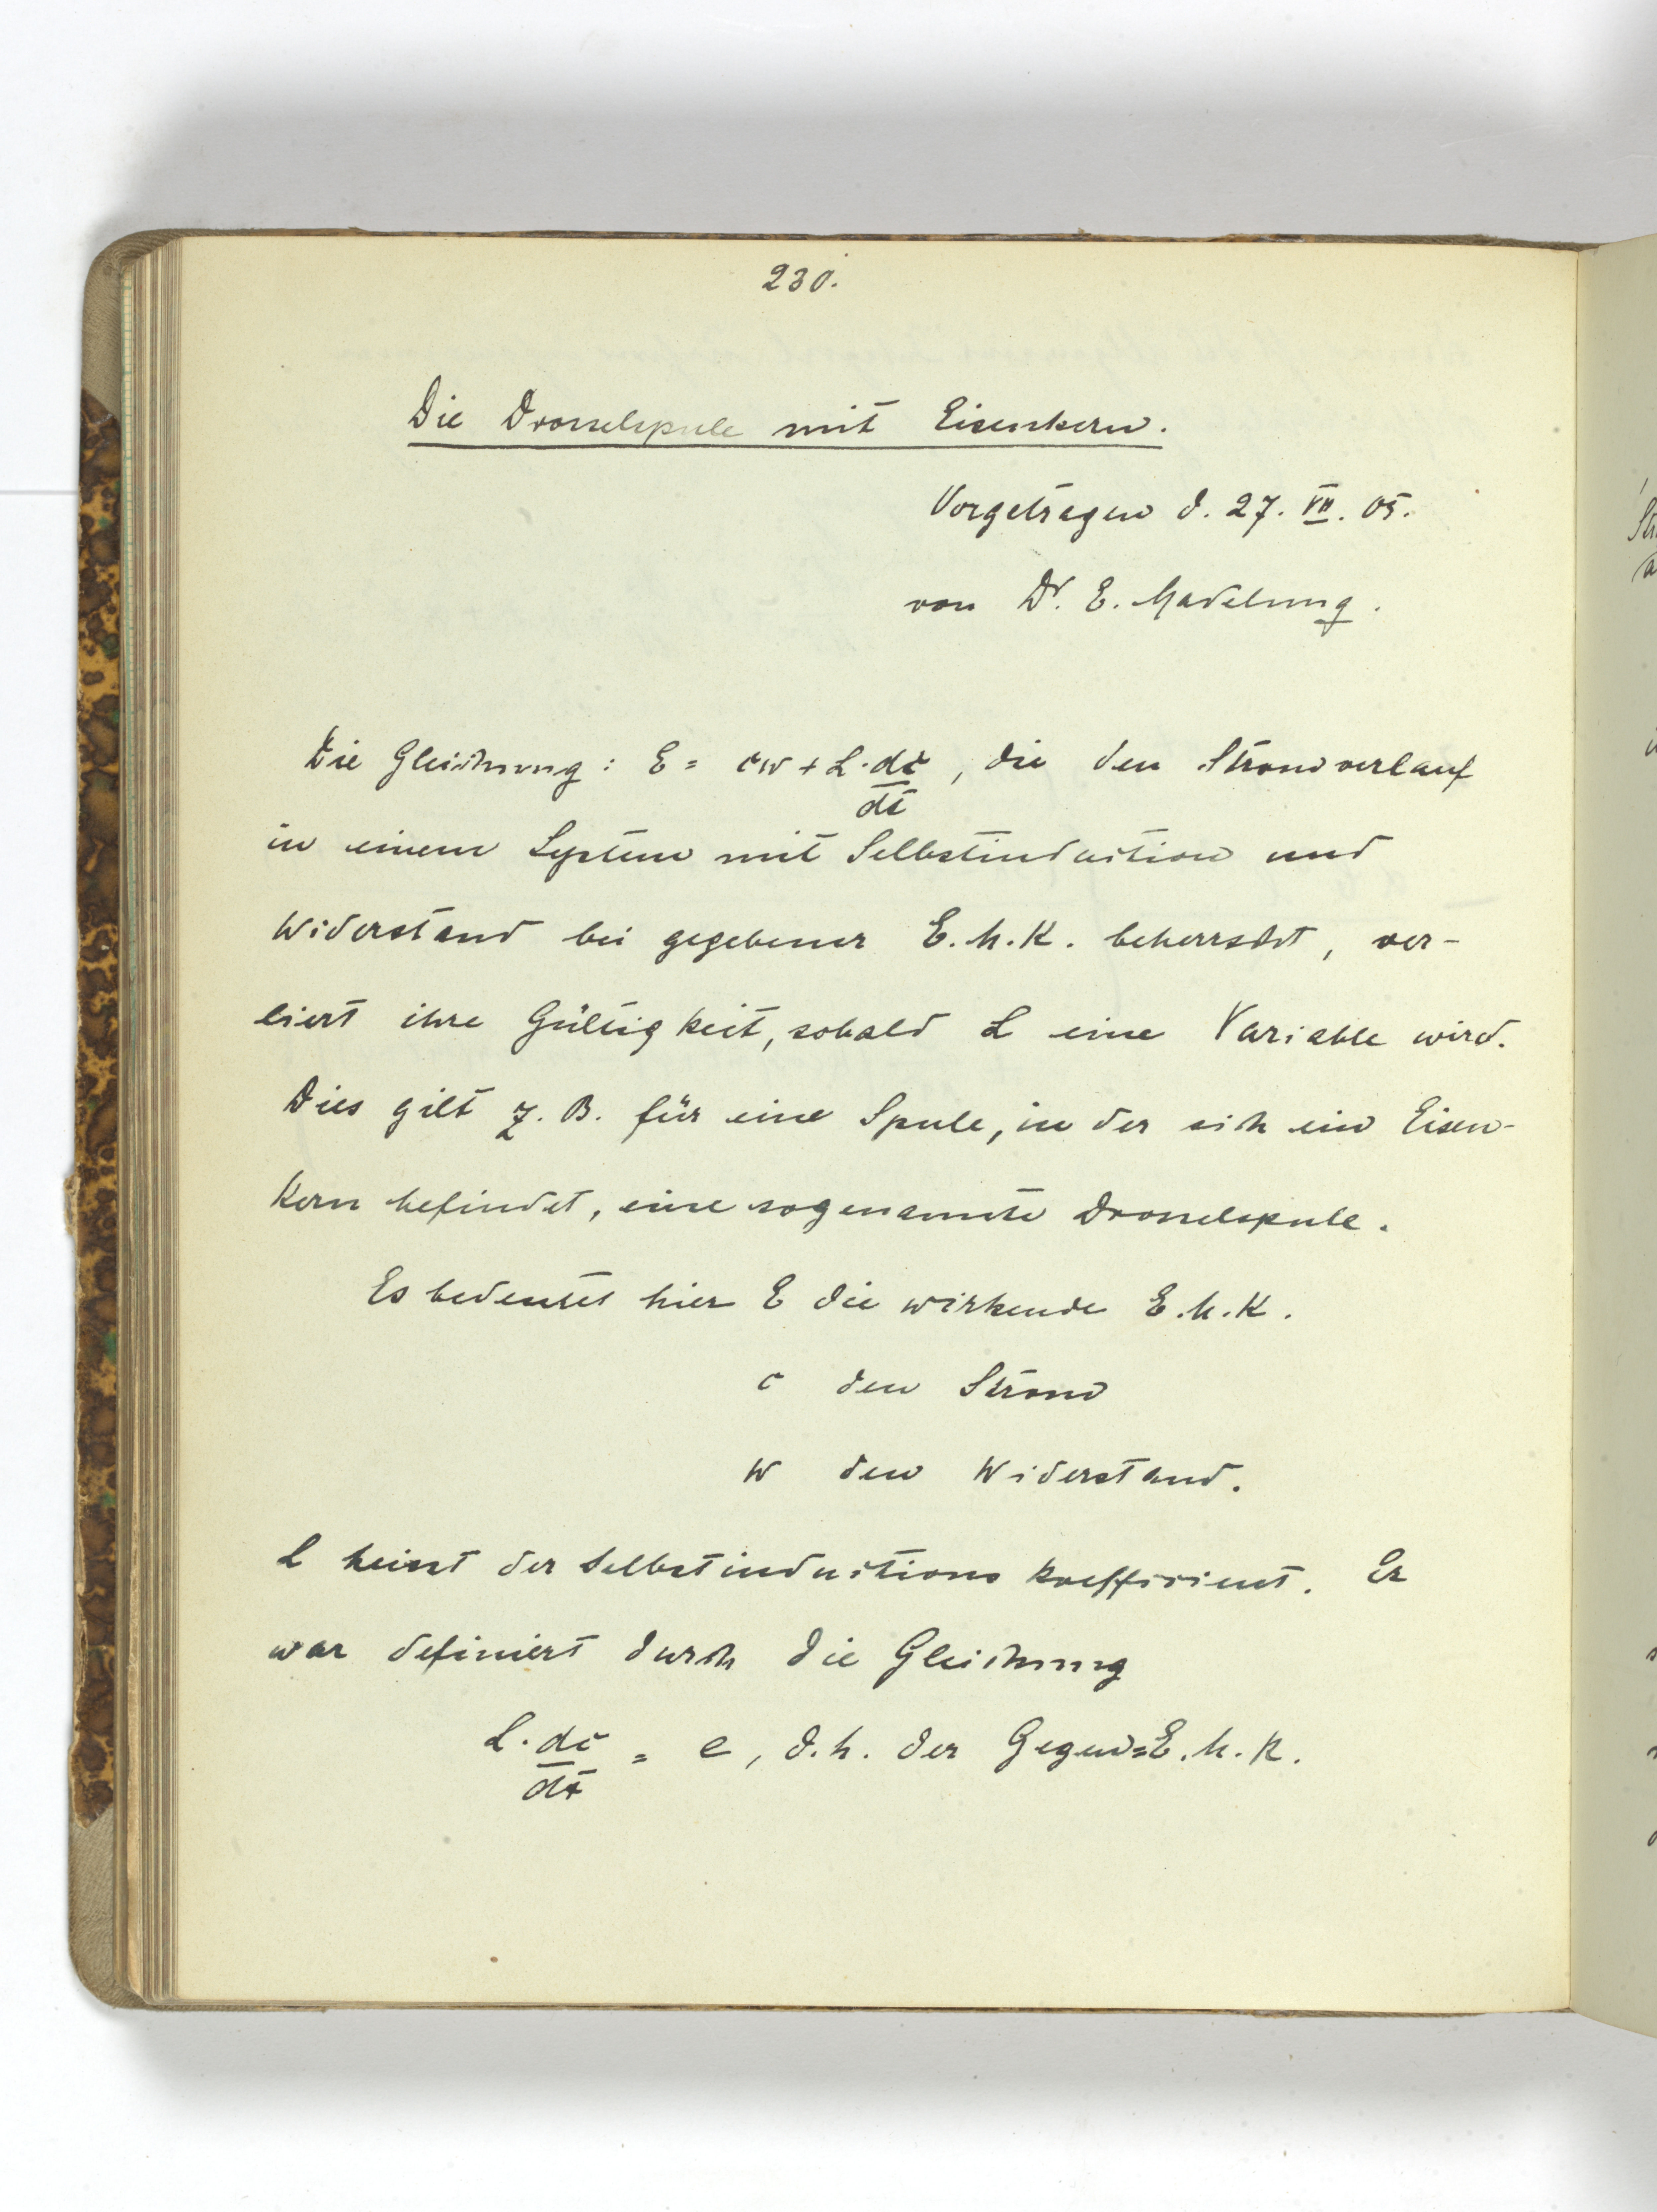 230.
Die Drosselspule mit Eisenkern.
Vorgetragen d. 27. VII. 05.
von Dr. E. Madelung.
Die Gleichung: E = cw + L · dc/dt, die den Stromverlauf
in einem System mit Selbstinduction und
Widerstand bei gegebener E.M.K. beherrscht, ver-
liert ihre Gültigkeit, sobald L eine Variable wird.
Dies gilt z. B. für eine Spule, in der sich ein Eisen-
kern befindet, eine sogenannte Drosselspule.
Es bedeutet hier E die wirkende E.M.K.
c den Strom
w den Widerstand.
L heisst der Selbstinductions koefficient. Er
war definiert durch die Gleichung
L · dc/dt = e, d.h. der Gegen=E.M.K.